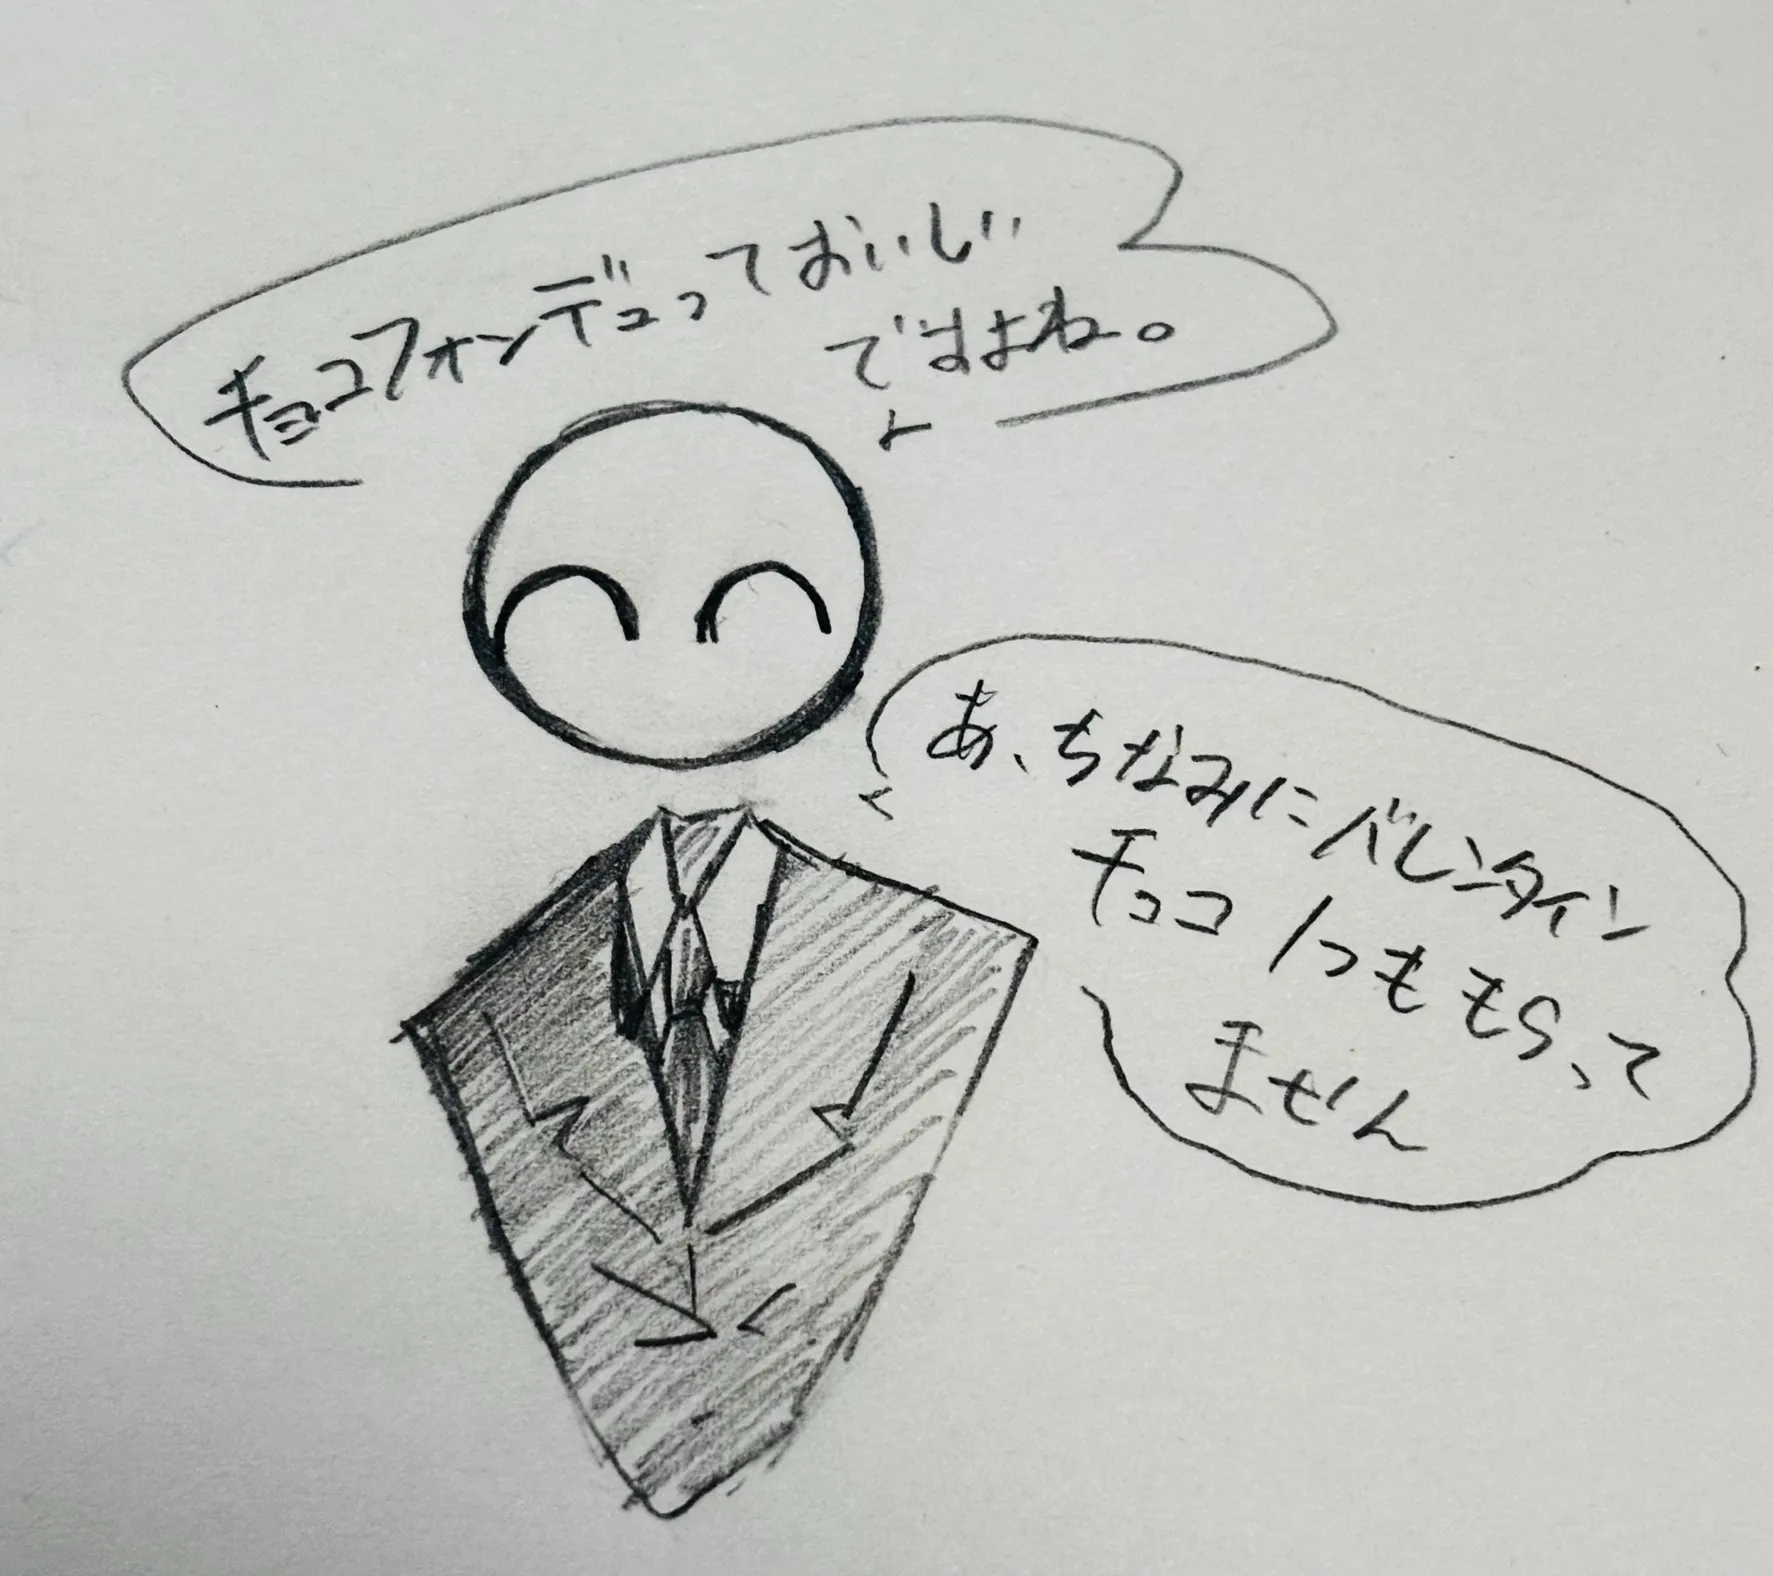 チョコフォンデュっておいしい
ですよね。
あ、ちなみにバレンタイン
チョコ1つももらって
ません